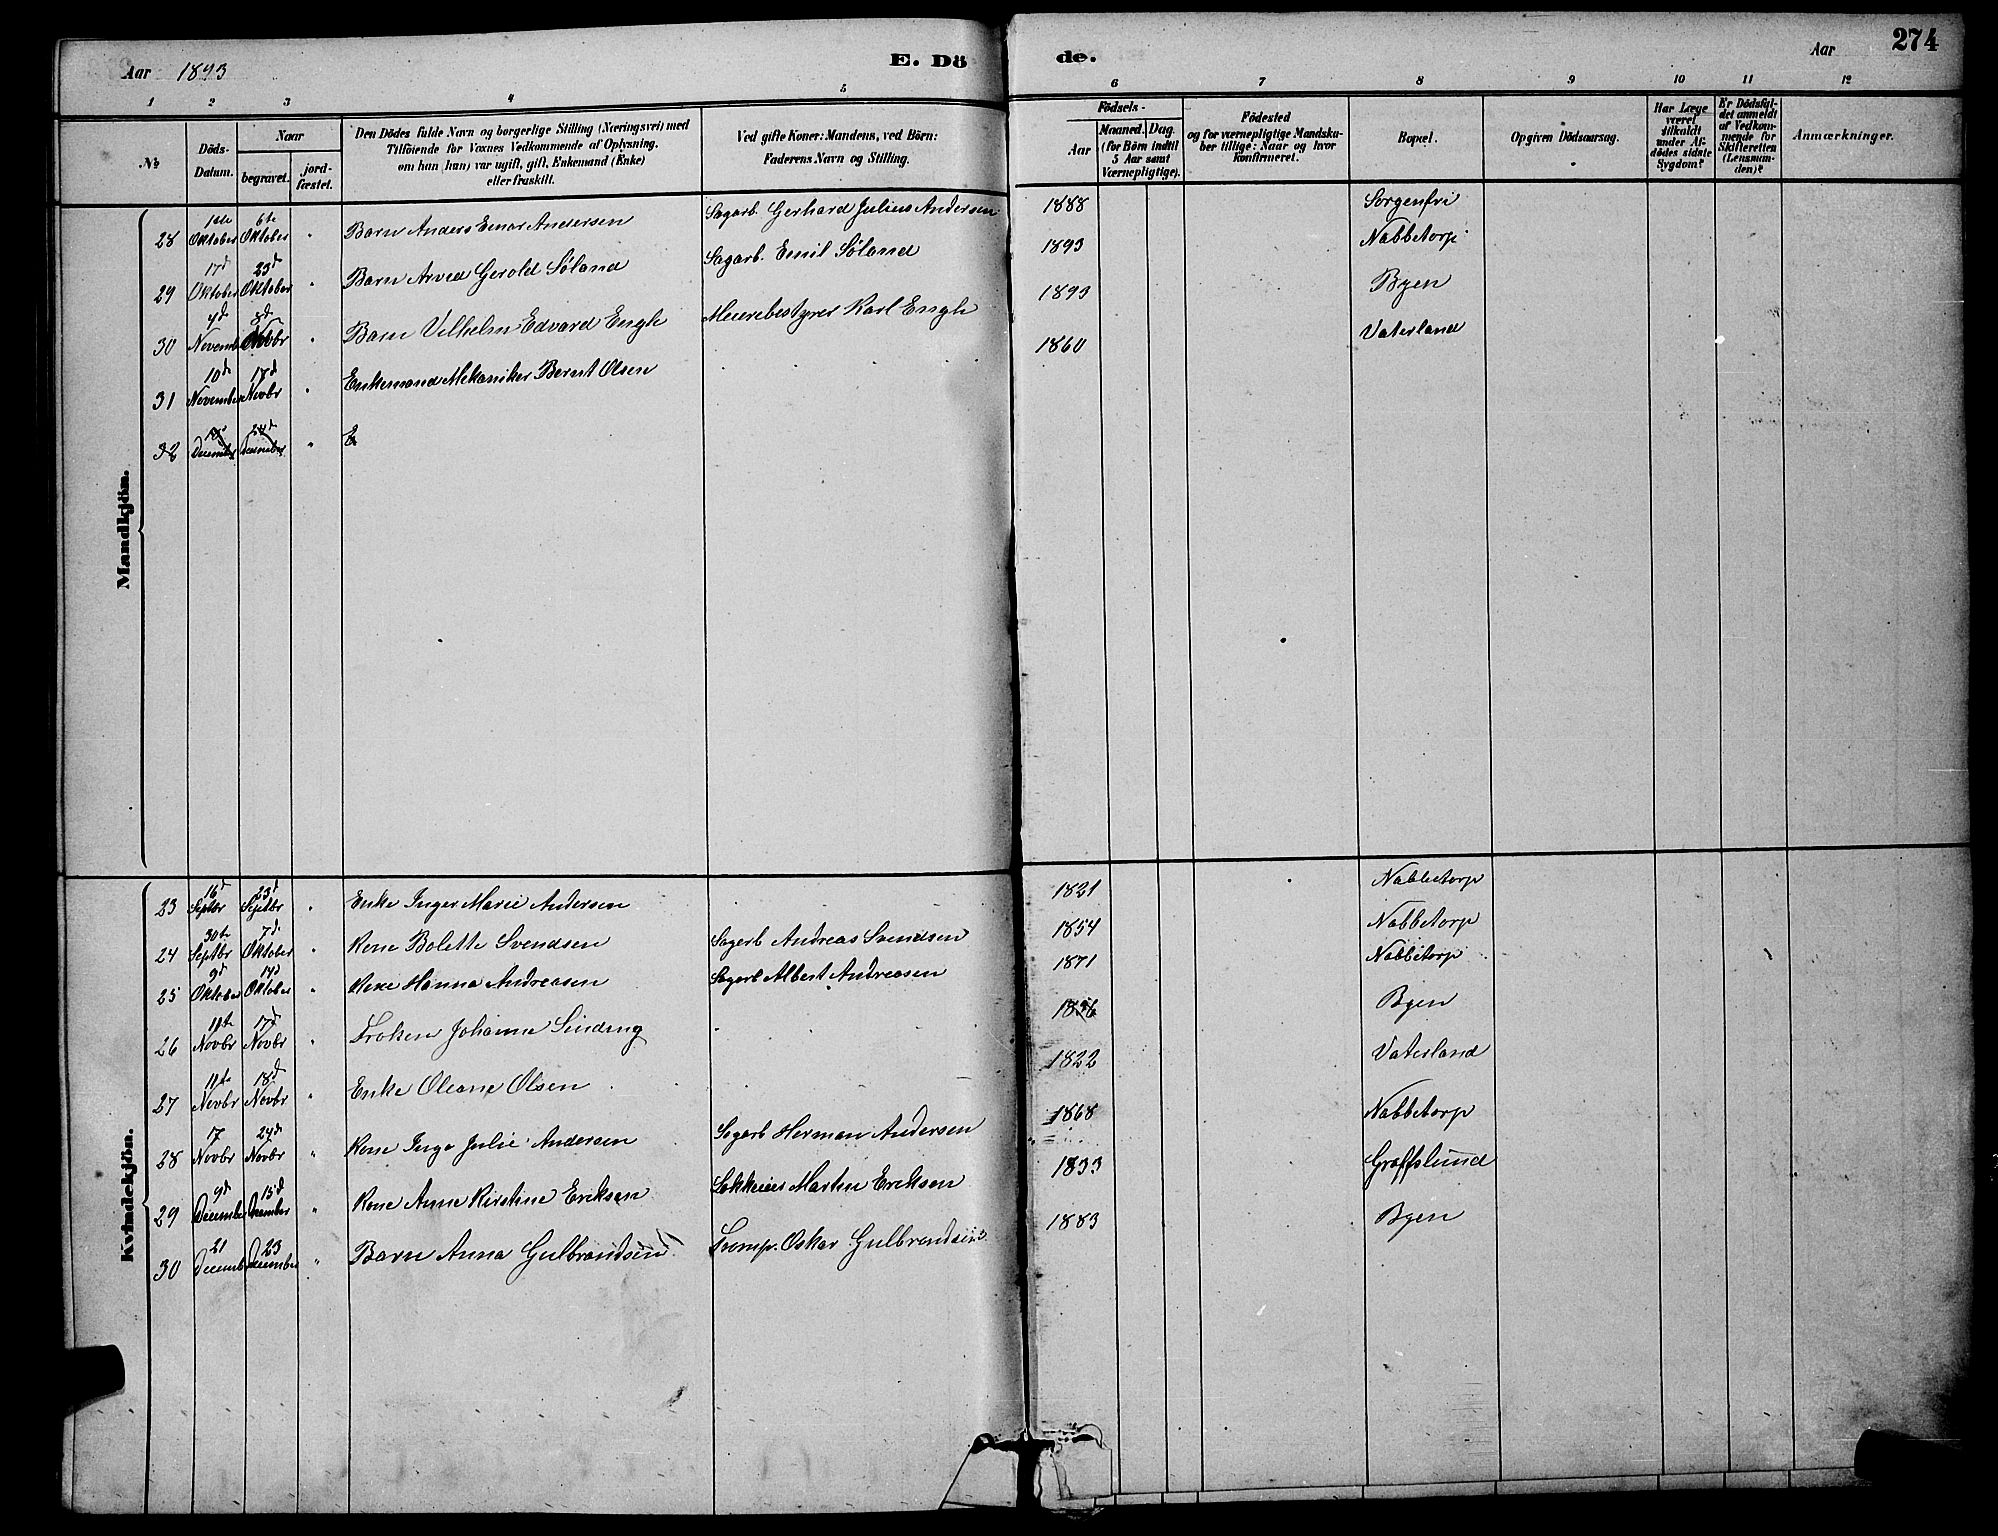 Aar 1893 E. Dö de. Aar 274
1 2 3 4 5 6 7 8 9 10 11 12
№ Döds-Datum. Naar begravet. jord-fæstet. Den Dödes fulde Navn og borgerlige Stilling (Næringsvei) med Tilföiende for Voxnes Vedkommende af Oplysning, om han (hun) var ugift, gift, Enkemand (Enke) eller fraskilt. Ved gifte Koner: Mandens, ved Börn: Faderens Navn og Stilling. Födsels- Aar Maaned. Dag. (for Börn indtil 5 Aar samt Værnepligtige). Födested og for værnepligtige Mandska-ber tillige: Naar og hvor Konfirmeret. Bopæl. Opgiven Dödsaarsag. Har Læge været tilkaldt under Af-dödes sidste Sygdom? Er Dödsfal-det anmeldt af Vedkom-mende for Skifteretten (Lensman-den)? Anmærkninger.
Mandkjön.
28 Oktober 6te Oktober " Barn Anders Einar Andersen Sagarb. Gerhard Julius Andersen 1888 Sorgenfri
29 17d Oktober 23d Oktober " Barn Arved Gerold Söland Sagarb. Emil Söland 1893 Nabbetorp
30 4d Novemb 8d Novbr " Barn Vilhelm Edvard Engh Meieribestyrer Karl Engh 1893 Byen
31 10d November 17d Novbr " Enkemand Mekaniker Bernt Olsen 1860 Vaterland
32 December December " E
Kvindekjön.
23 16d Septbr 23d Septbr " Enke Inger Marie Andersen 1821 Nabbetorp
24 30te Septbr 7d Oktober " Kone Bolette Svendsen Sagarb Andreas Svendsen 1854 Nabbetorp
25 9d Oktober 14d Oktober " Kone Hanna Andreasen Sagarb Albert Andreasen 1871 Nabbetorp
26 11te Novbr 17d Novbr " Froken Johanne Sinding Byen
27 11te Novbr 18d Novbr " Enke Oleane Olsen 1822 Vaterland
28 17 Novbr 24d Novbr " Kone Inga Julie Andersen Sagarb Herman Andersen 1868 Nabbetorp
29 9d December 15d December " Kone Anne Kirstine Eriksen Martin Eriksen 1833 Graffslund
30 21 Decemb 23 December " Barn Anna Gulbrandsen Oskar Gulbrandsen 1883 Byen